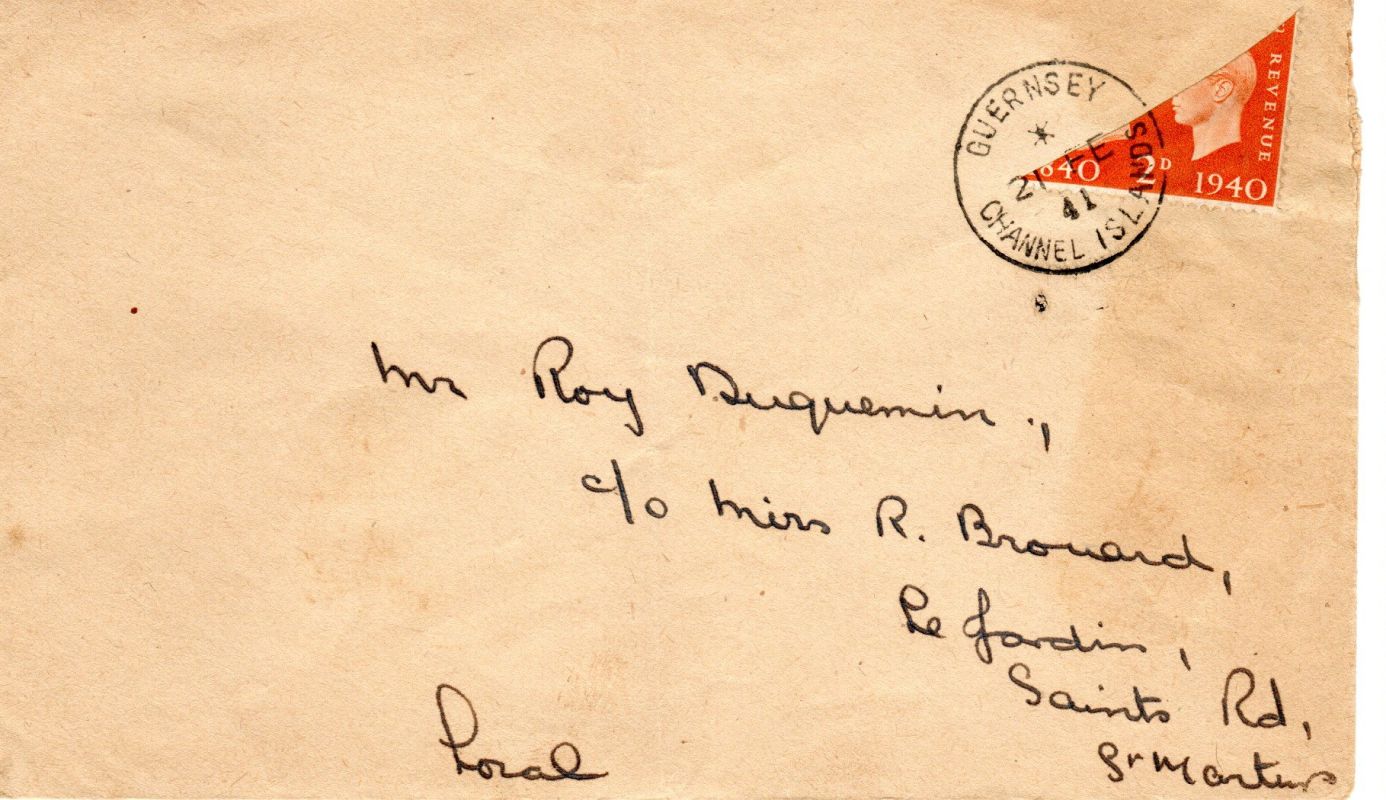 GUERNSEY
21 FE
41
CHANNEL ISLANDS
REVENUE
840 2D 1940
Mr Roy Duquemin.,
c/o Miss R. Brouard,
Le Jardin,
Saints Rd,
St Martins
Local